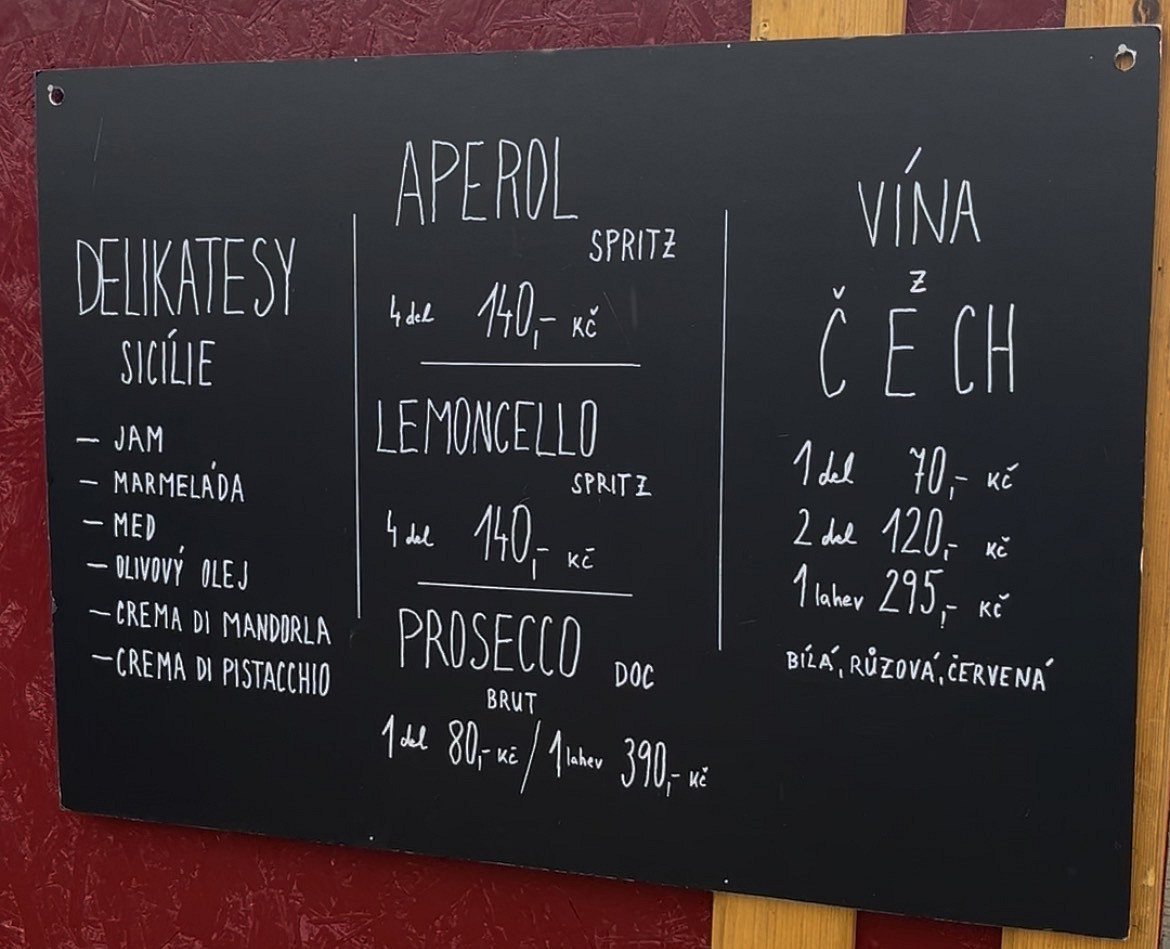 DELIKATESY
SICÍLIE
— JAM
— MARMELÁDA
— MED
— OLIVOVÝ OLEJ
— CREMA DI MANDORLA
— CREMA DI PISTACCHIO
APEROL
SPRITZ
4 del 140,- KČ
LEMONCELLO
SPRITZ
4 del 140,- KČ
PROSECCO DOC
BRUT
1 del 80,- KČ / 1 lahev 390,- KČ
VÍNA
Z
ČECH
1 del 70,- KČ
2 del 120,- KČ
1 lahev 295,- KČ
BÍLÁ, RŮZOVÁ, ČERVENÁ